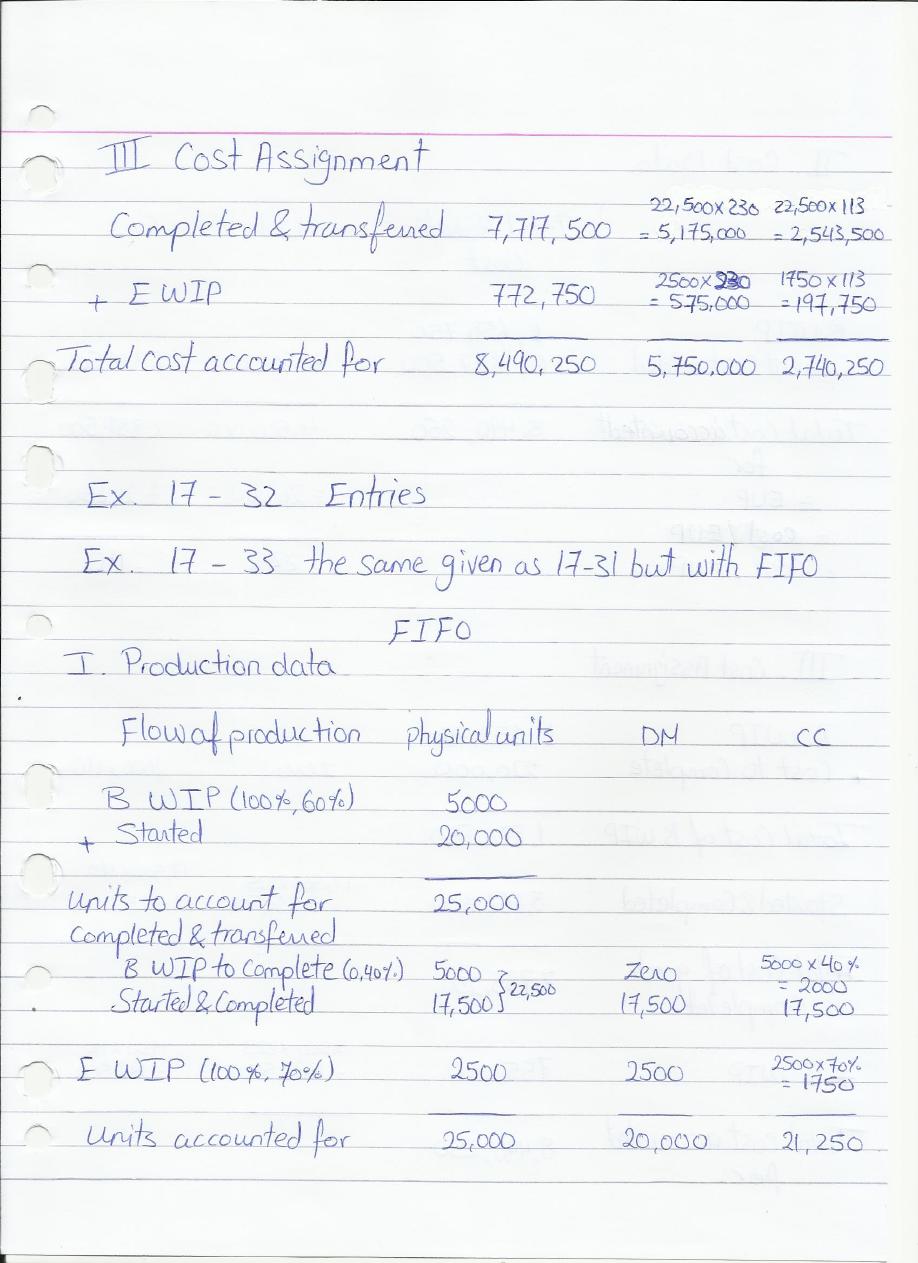 III Cost Assignment
22,500x230 22,500x113
Completed & transferred 7,717,500 = 5,175,000 = 2,543,500
2500x230 1750x113
+ E WIP 772,750 = 575,000 = 197,750
Total cost accounted for 8,490,250 5,750,000 2,740,250
Ex. 17 - 32 Entries
Ex. 17 - 33 the same given as 17-31 but with FIFO
FIFO
I. Production data
Flow of production physical units DM CC
B WIP (100%, 60%) 5000
+ Started 20,000
units to account for 25,000
Completed & transferred
B WIP to Complete (0,40%) 5000 Zero 5000 x 40%
= 2000
Started & Completed 17,500 } 22,500 17,500 17,500
E WIP (100%, 70%) 2500 2500 2500x70%
= 1750
Units accounted for 25,000 20,000 21,250